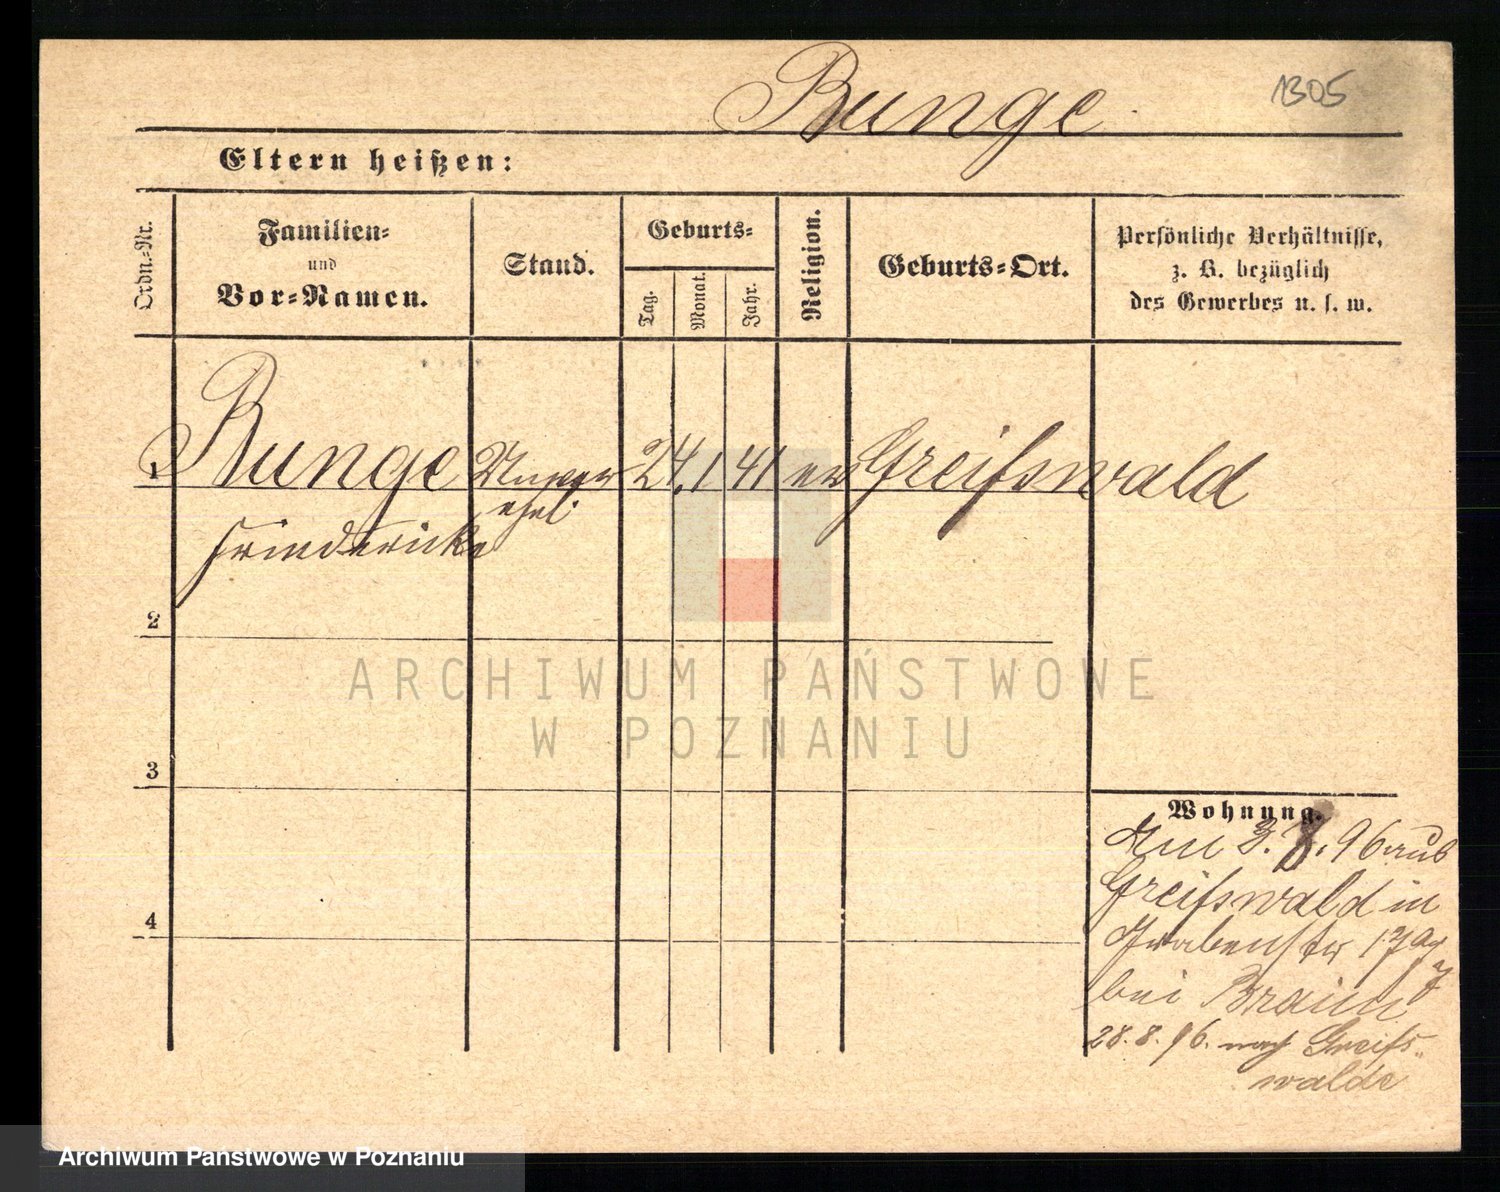 Bunge
1305
Eltern heißen:
Ordn.-Nr.
Familien-
und
Vor-Namen.
Stand.
Geburts-
Tag.
Monat.
Jahr.
Religion.
Geburts-Ort.
Persönliche Verhältnisse,
z. B. bezüglich
des Gewerbes u. s. w.
1 Bunge Unver 24. 1 41 ev Greifswald
ehel.
Friedericke
2
ARCHIWUM PAŃSTWOWE
W POZNANIU
3
Wohnung.
Am 3. 96 aus
Greifswald in
Grabenstr 17
bei Braun
4
28.8.96. nach Greifs-
walde
Archiwum Państwowe w Poznaniu